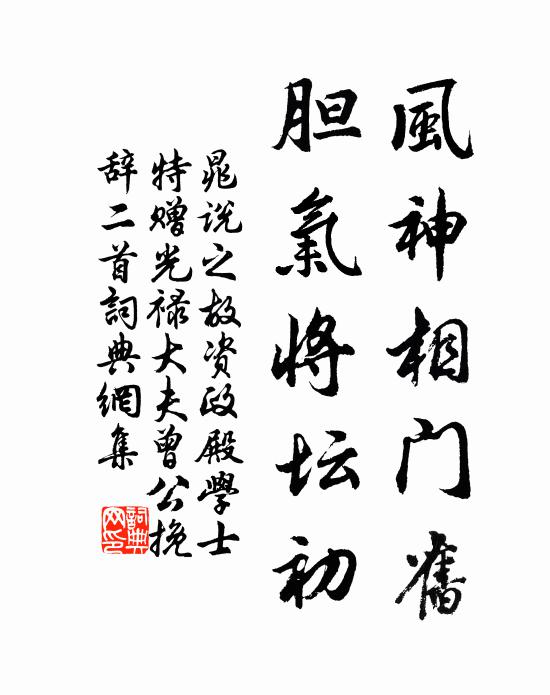 風神相门舊
胆氣將坛初
晁说之故资政殿學士
特赠光禄大夫曾公挽
辞二首詞典網集
詞典網印